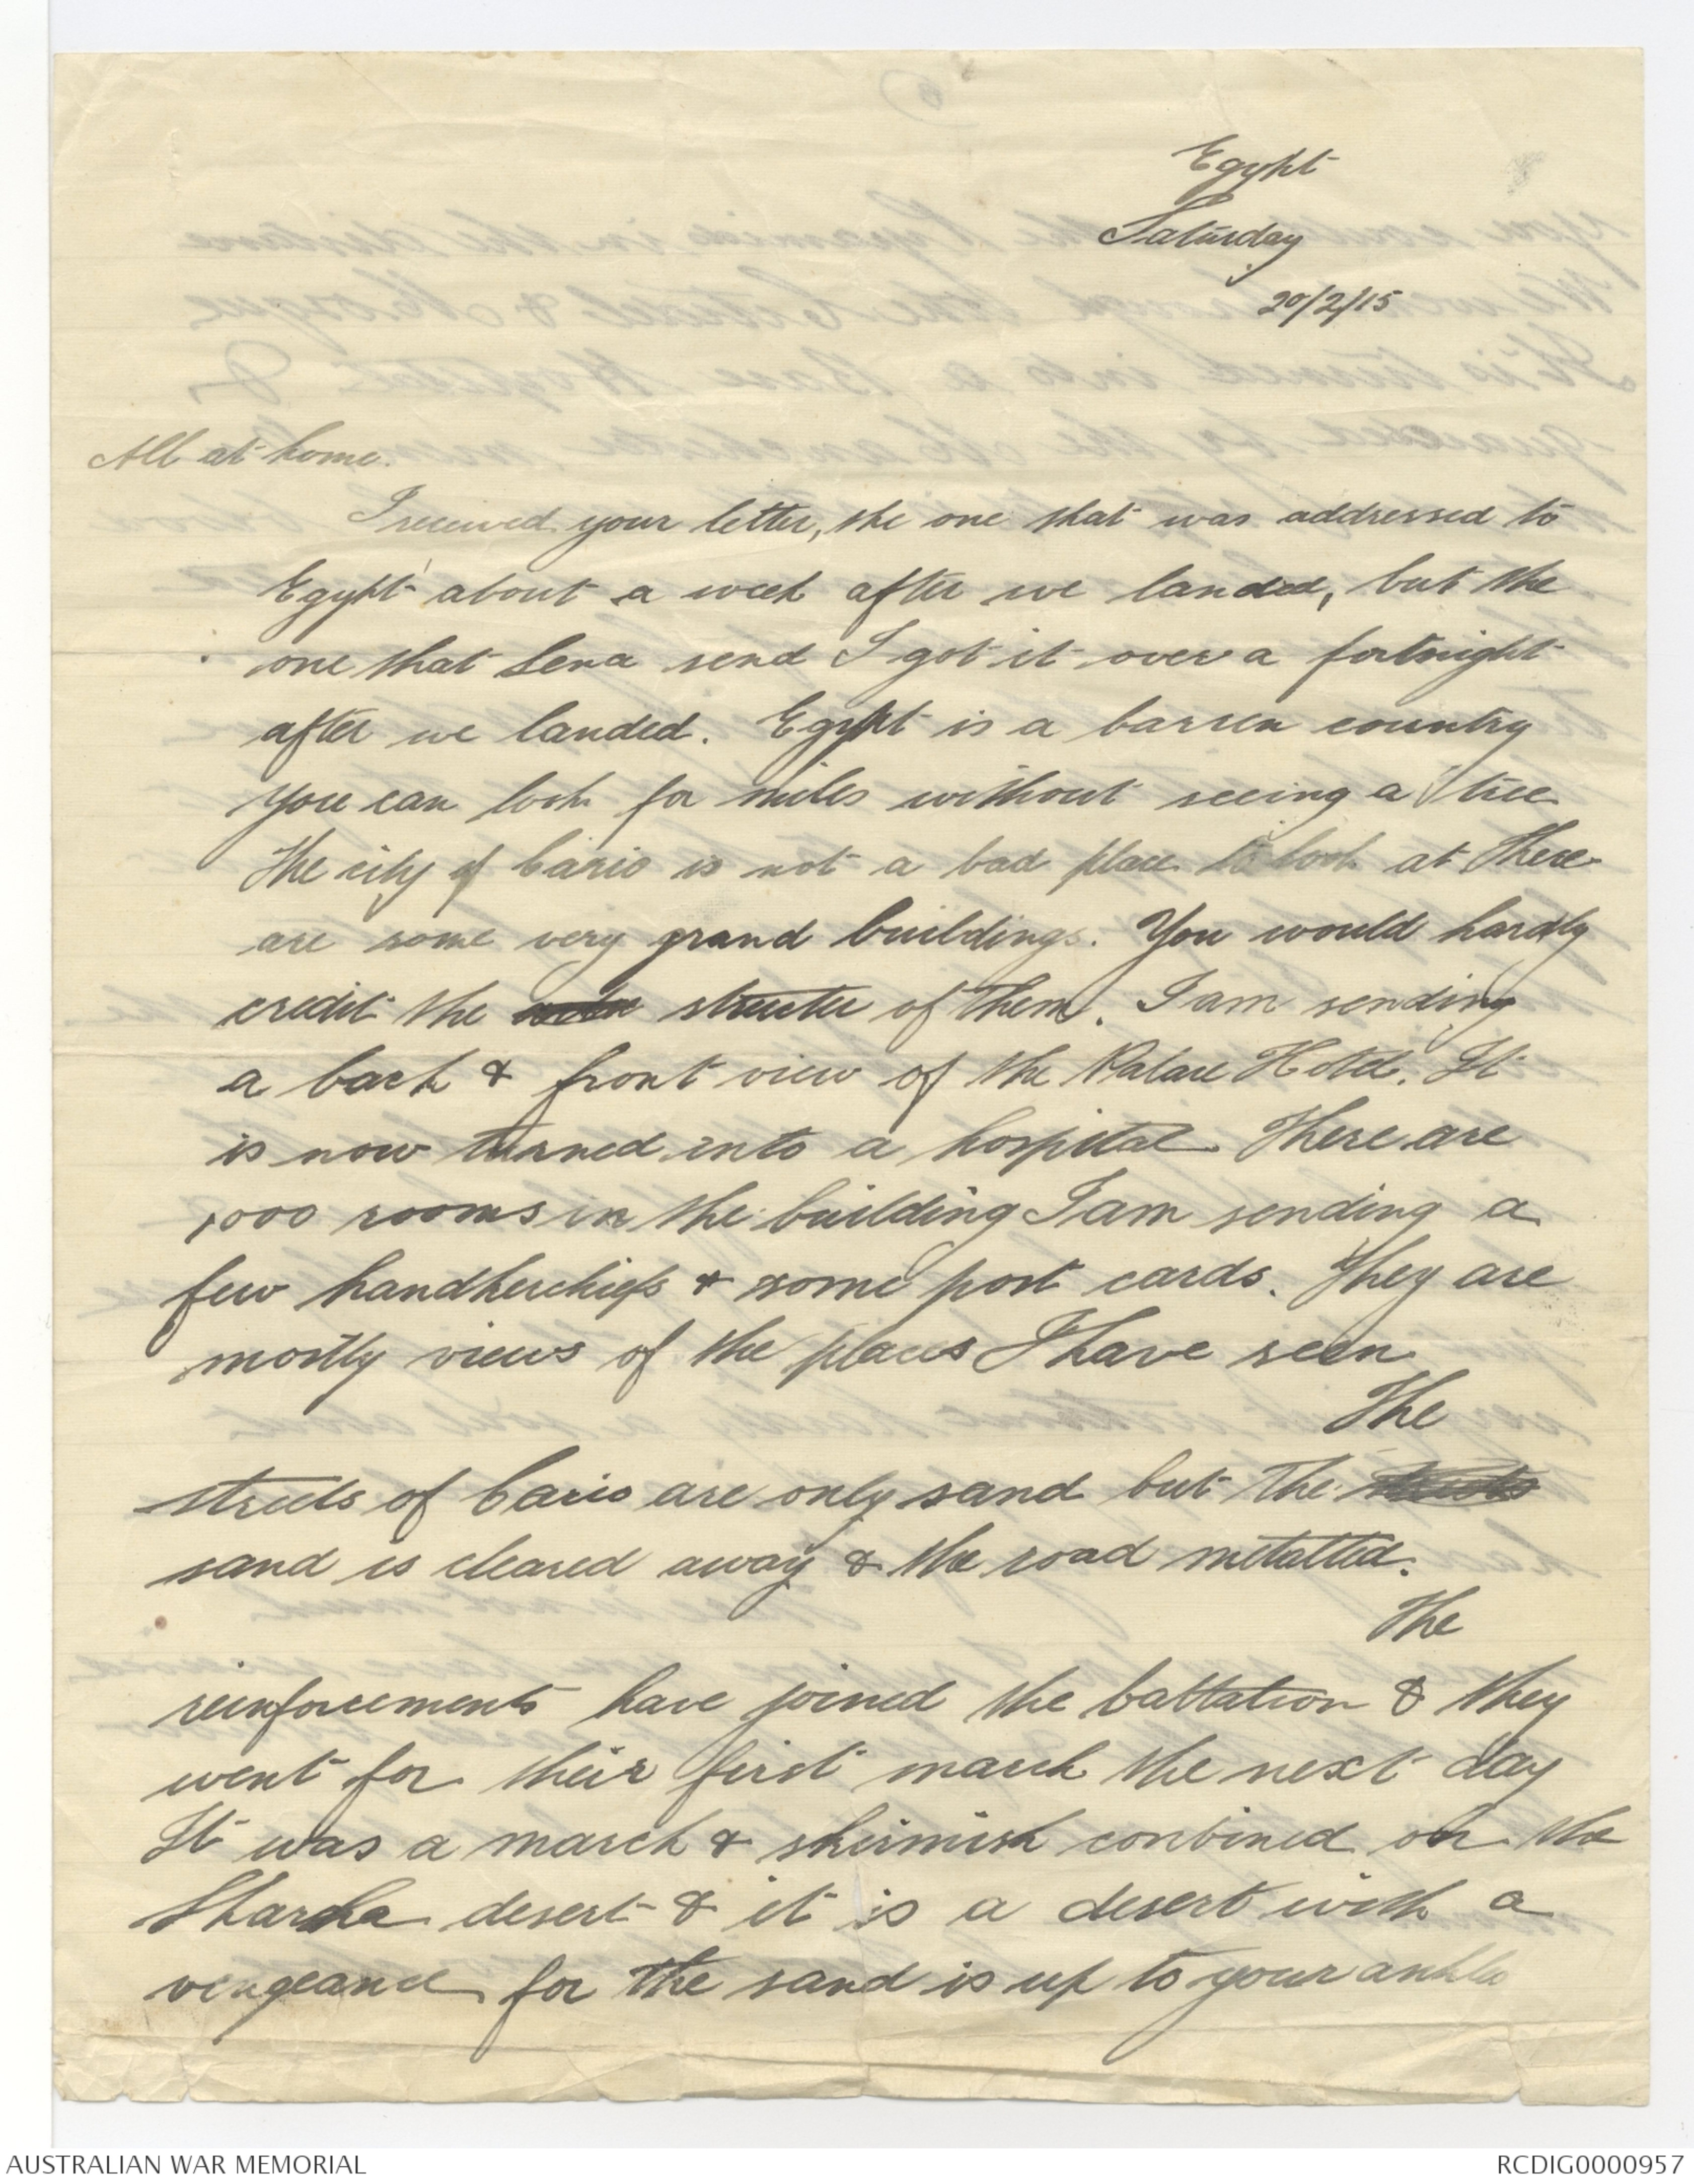 Egypt
Saturday
20/2/15
All at home.
I received your letter, the one that was addressed to
Egypt about a week after we landed, but the
one that Lena send I got it over a fortnight
after we landed. Egypt is a barren country
you can look for miles without seeing a tree
The city of Cario is not a bad place to look at There
are some very grand buildings. You would hardly
credit the structer of them. I am sending
a back & front view of the Palace Hotel. It
is now turned into a hospital. There are
1000 rooms in the building I am sending a
few handkerchiefs & some post cards. They are
mostly views of the places I have seen
The
streets of Cario are only sand but the streets
sand is cleared away & the road metalled.
The
reinforcements have joined the battation & they
went for their first march the next day
It was a march & skirmish conbined on the
Sharha desert & it is a desert with a
vengeance for the sand is up to your ankles
AUSTRALIAN WAR MEMORIAL
RCDIG0000957